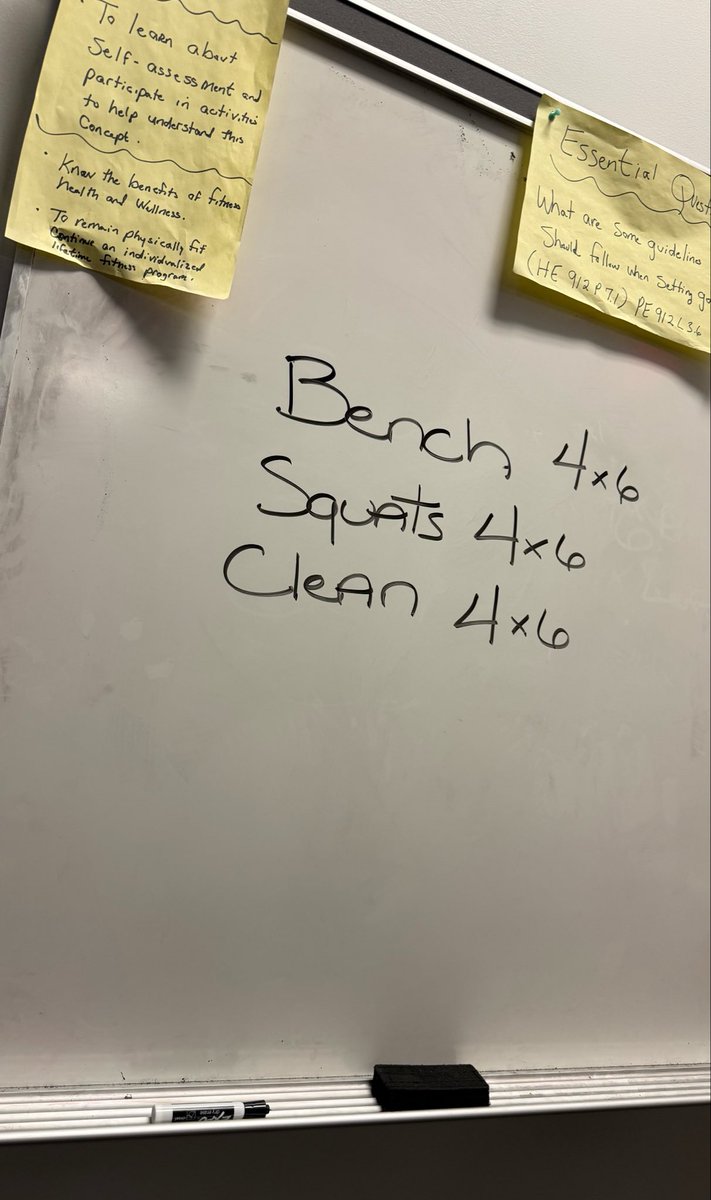 To learn about
Self-assessment and
participate in activities
to help understand this
Concept.
• Know the benefits of fitness
health and Wellness.
• To remain physically fit
Continue an individualized
lifetime fitness program.
Essential Quest
What are some guideline
Should follow when setting go
(HE 912 P7.1) PE 912 L 3.6
Bench 4x6
Squats 4x6
Clean 4x6